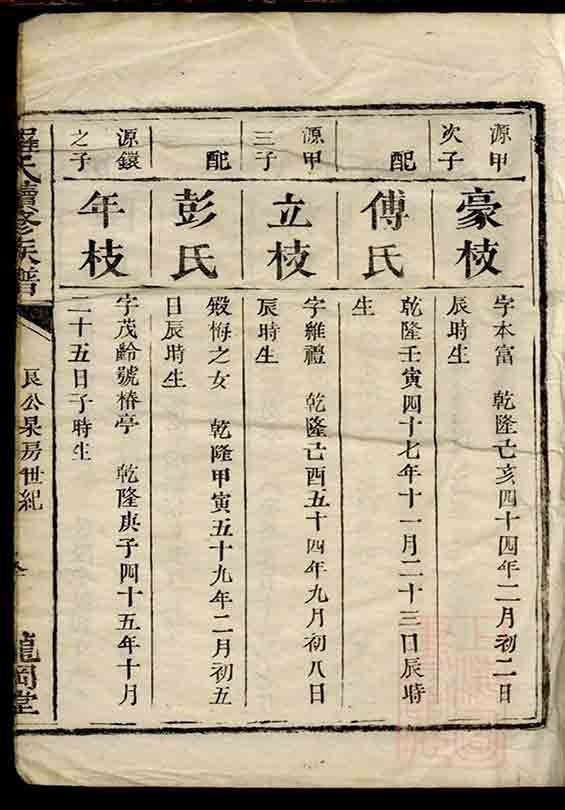 源甲
次子
豪枝
字本富 乾隆己亥四十四年二月初二日
辰時生
配
傅氏
乾隆壬寅四十七年十一月二十三日辰時
生
源甲
三子
立枝
字禮 乾隆己酉五十四年九月初八日
辰時生
配
彭氏
毅悔之女 乾隆甲寅五十九年二月初五
日辰時生
源鐶
之子
年枝
字茂齡號椿亭 乾隆庚子四十五年十月
二十五日子時生
羅氏續修族譜
良公杲房世紀
龍岡堂